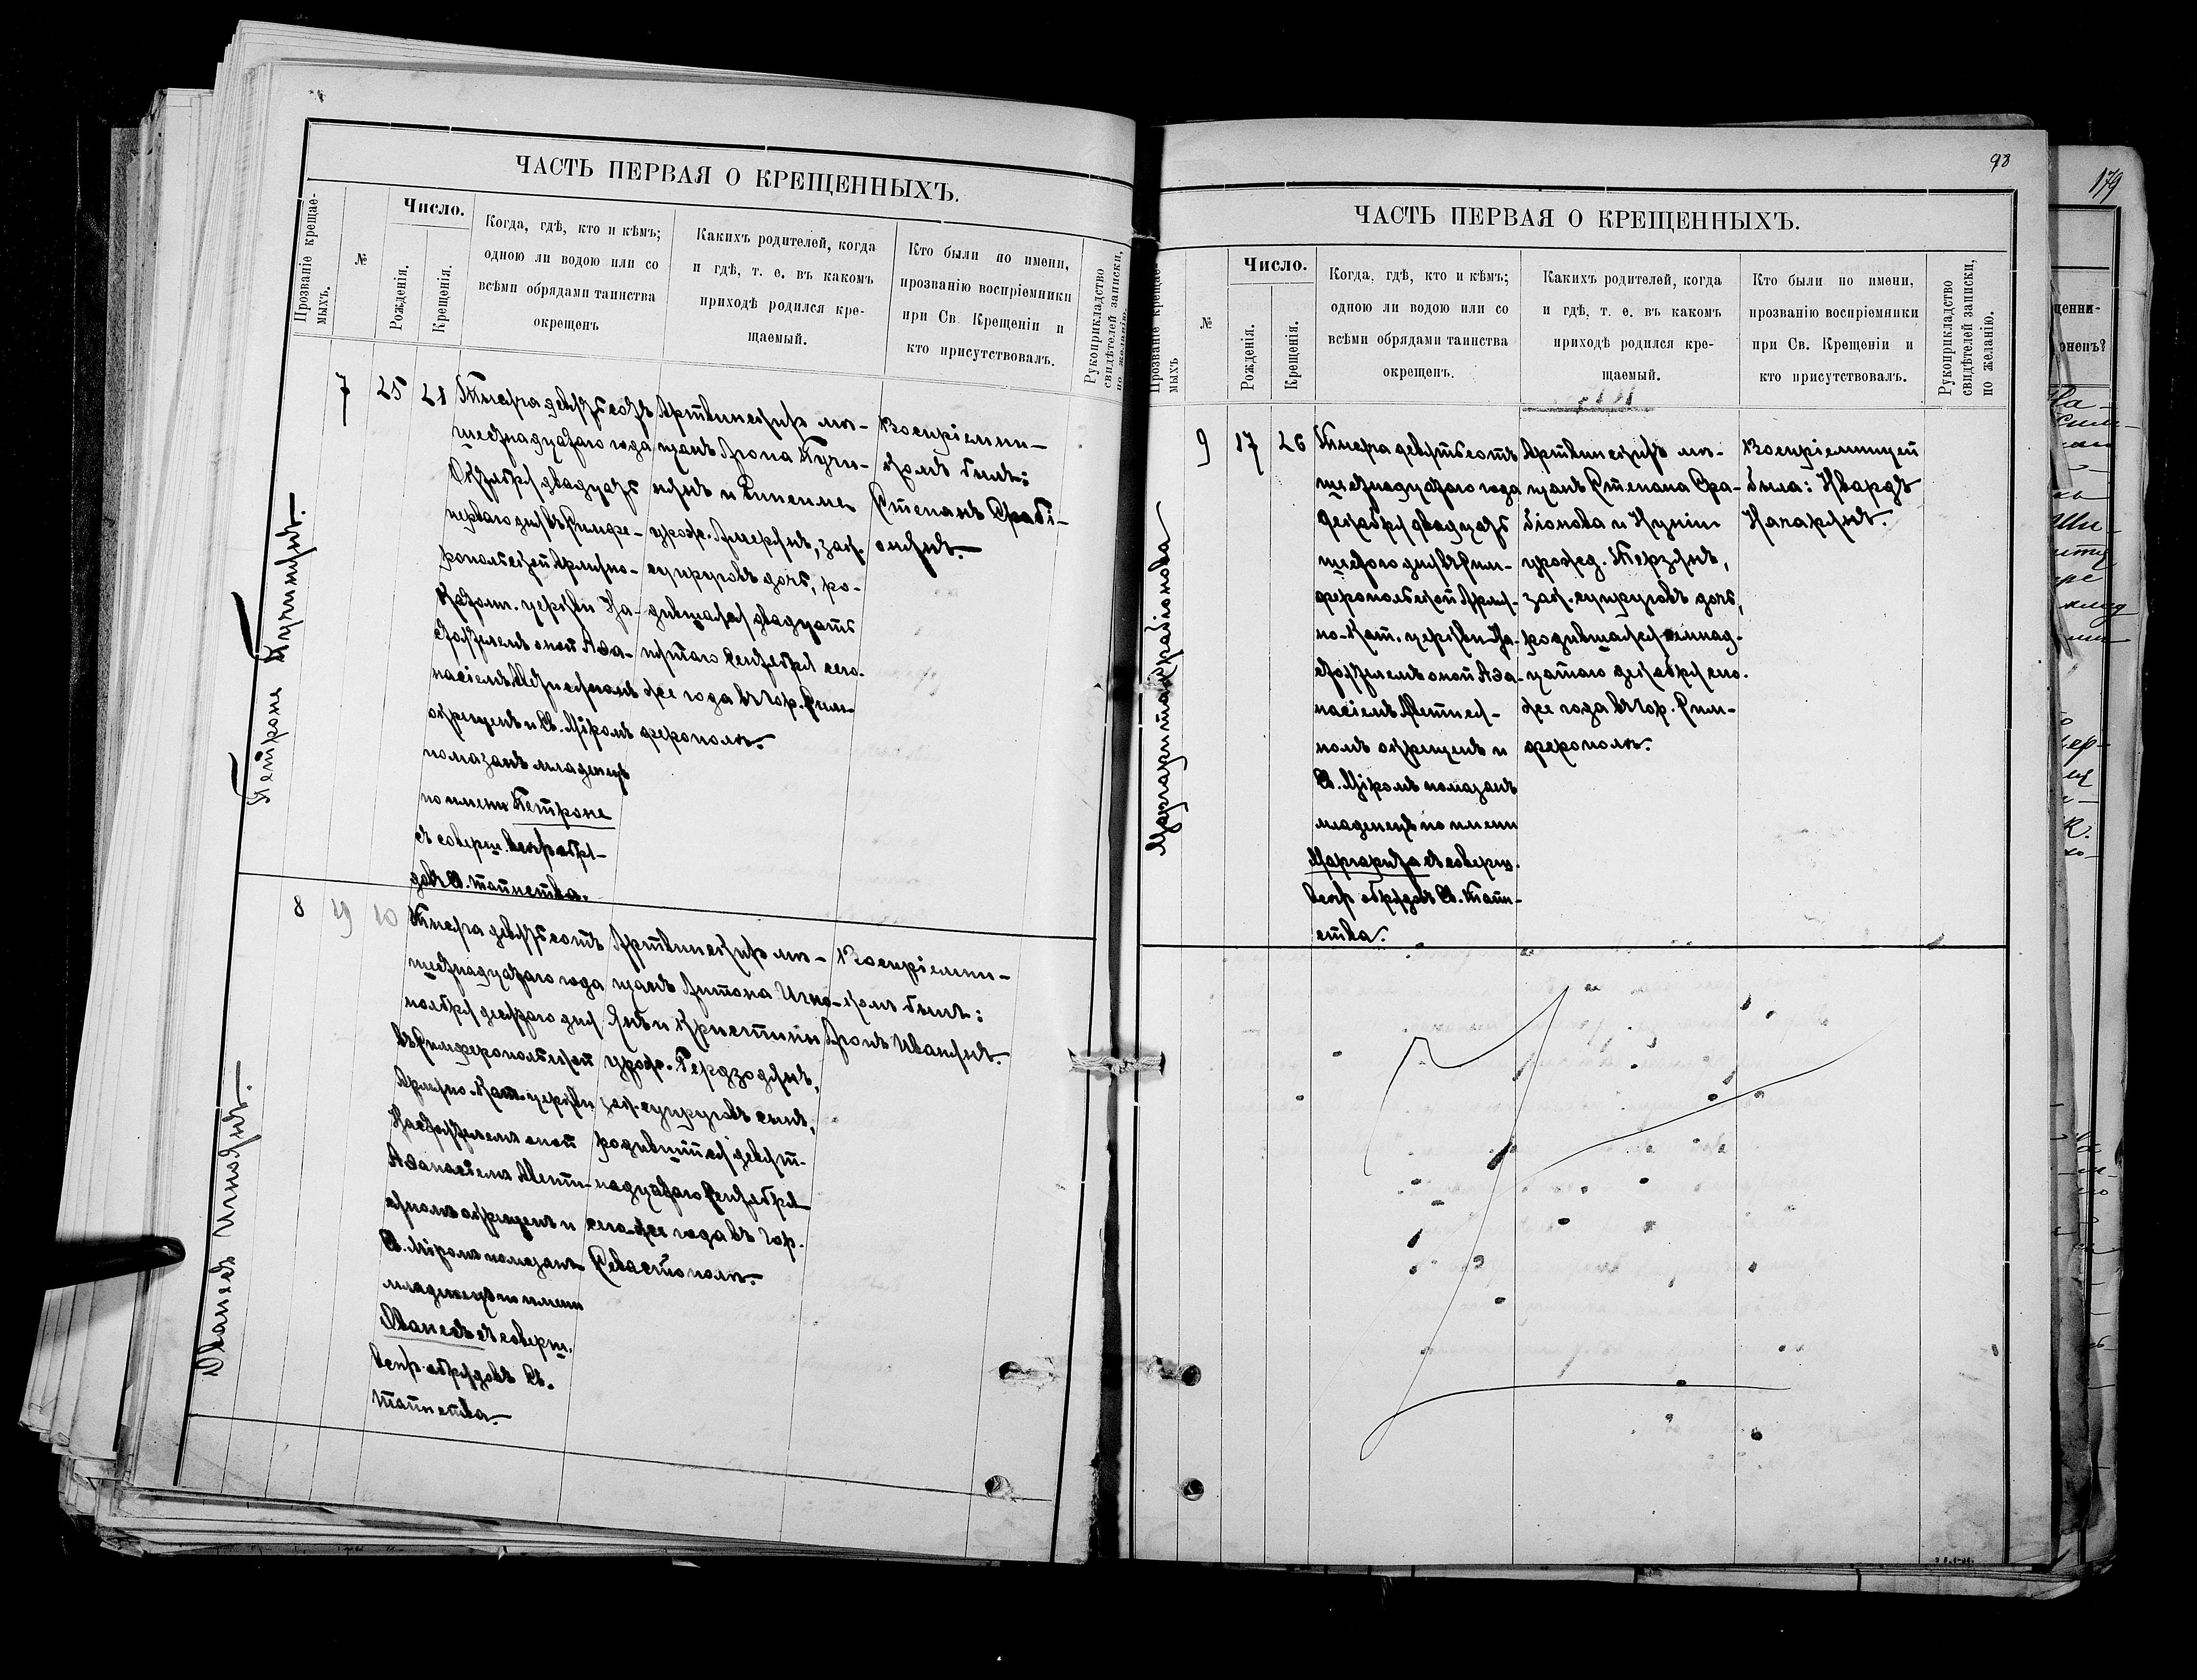 ЧАСТЬ ПЕРВАЯ О КРЕЩЕННЫХЪ.
Прозваніе крещае-
мыхъ.
№
Число.
Рожденія.
Крещенія.
Когда, гдѣ, кто и кѣмъ;
одною ли водою или со
всѣми обрядами таинства
окрещенъ
Какихъ родителей, когда
и гдѣ, т. е. въ какомъ
приходѣ родился кре-
щаемый.
Кто были по имени,
прозванію воспріемники
при Св. Крещеніи и
кто присутствовалъ.
Рукоприкладство
свидѣтелей записки,
по желанію.
Петроне Кучинянъ.
7
25
21
Тысяча девятьсотъ
шестнадцатаго года
Октября двадцать
перваго дня въ Симфе-
ропольской Армяно-
Католич. церкви На-
стоятелемъ оной Афа-
насіемъ
окрещенъ и Св. Мѵромъ
помазанъ младенецъ
по имени Петроне
съ соверш. всѣхъ обря-
довъ Св. таинства.
Артвинскихъ мѣ-
щанъ Арона Кучи-
нянъ и
урожд. зак.
супруговъ дочь, ро-
дившаяся двадцать
пятаго Сентября сего-
же года въ гор. Сим-
ферополѣ.
Воспріемни-
комъ былъ:
Степанъ Срабі-
онянъ.
Ованесъ
8
19
10
Тысяча девятьсотъ
шестнадцатаго года
ноября десятаго дня
въ Симферопольской
Армяно-Кат. церкви
Настоятелемъ оной
Афанасіемъ
окрещенъ и
Св. Мѵромъ помазанъ
младенецъ по имени
Ованесъ съ соверш.
всѣхъ обрядовъ Св.
таинства.
Артвинскихъ мѣ-
щанъ Антона
и Христины
урожд. Терзодянъ,
зак. супруговъ сынъ,
родившійся девят-
надцатаго Сентября
сего же года въ гор.
Севастополѣ.
Воспріемни-
комъ былъ:
Аронъ Иванянъ.
98
ЧАСТЬ ПЕРВАЯ О КРЕЩЕННЫХЪ.
Прозваніе крещае-
мыхъ
№
Число.
Рожденія.
Крещенія.
Когда, гдѣ, кто и кѣмъ;
одною ли водою или со
всѣми обрядами таинства
окрещенъ.
Какихъ родителей, когда
и гдѣ, т. е. въ какомъ
приходѣ родился кре-
щаемый.
Кто были по имени,
прозванію воспріемники
при Св. Крещеніи и
кто присутствовалъ.
Рукоприкладство
свидѣтелей записки,
по желанію.
Маргарита Срабіонова
9
17
26
Тысяча девятьсотъ
шестнадцатаго года
декабря двадцать
шестого дня въ Сим-
феропольской Армя-
но-Кат. церкви На-
стоятелемъ оной Афа-
насіемъ
окрещенъ и
Св. Мѵромъ помазанъ
младенецъ по имени
Маргарита съ соверш.
всѣхъ обрядовъ Св. Таин-
ства.
Артвинскихъ мѣ-
щанъ Степана Сра-
біонова и
урожд. Терзянъ,
зак. супруговъ дочь,
родившаяся семнад-
цатаго декабря сего-
же года въ гор. Сим-
ферополѣ.
Воспріемницей
была: Нвардъ
Качарянъ.
179